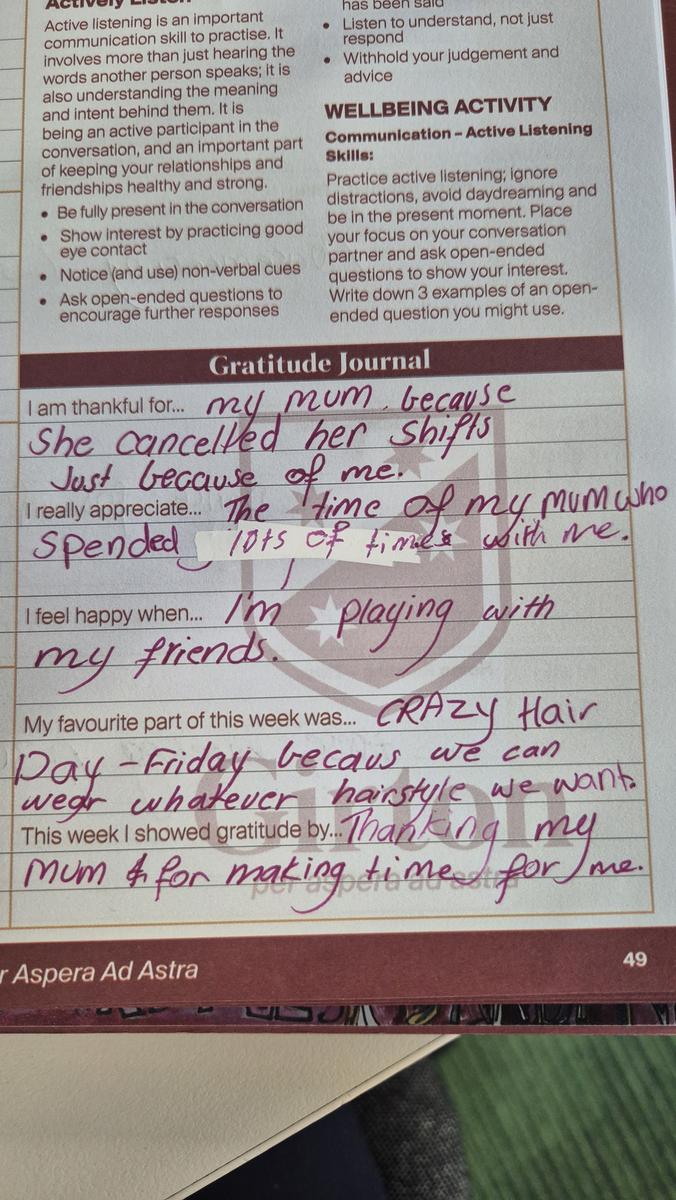 Active listening is an important
communication skill to practise. It
involves more than just hearing the
words another person speaks; it is
also understanding the meaning
and intent behind them. It is
being an active participant in the
conversation, and an important part
of keeping your relationships and
friendships healthy and strong.
• Be fully present in the conversation
• Show interest by practicing good
eye contact
• Notice (and use) non-verbal cues
• Ask open-ended questions to
encourage further responses
has been said
• Listen to understand, not just
respond
• Withhold your judgement and
advice
WELLBEING ACTIVITY
Communication – Active Listening
Skills:
Practice active listening; ignore
distractions, avoid daydreaming and
be in the present moment. Place
your focus on your conversation
partner and ask open-ended
questions to show your interest.
Write down 3 examples of an open-
ended question you might use.
Gratitude Journal
I am thankful for... my mum because
She cancelled her shifts
Just because of me.
I really appreciate... The time of my mum who
Spended lots of times with me.
I feel happy when... I'm playing with
my friends.
My favourite part of this week was... CRAZY Hair
Day - Friday becaus we can
wear whatever hairstyle we want.
This week I showed gratitude by... Thanking my
mum & for making time for me.
Girton
per aspera ad astra
r Aspera Ad Astra
49